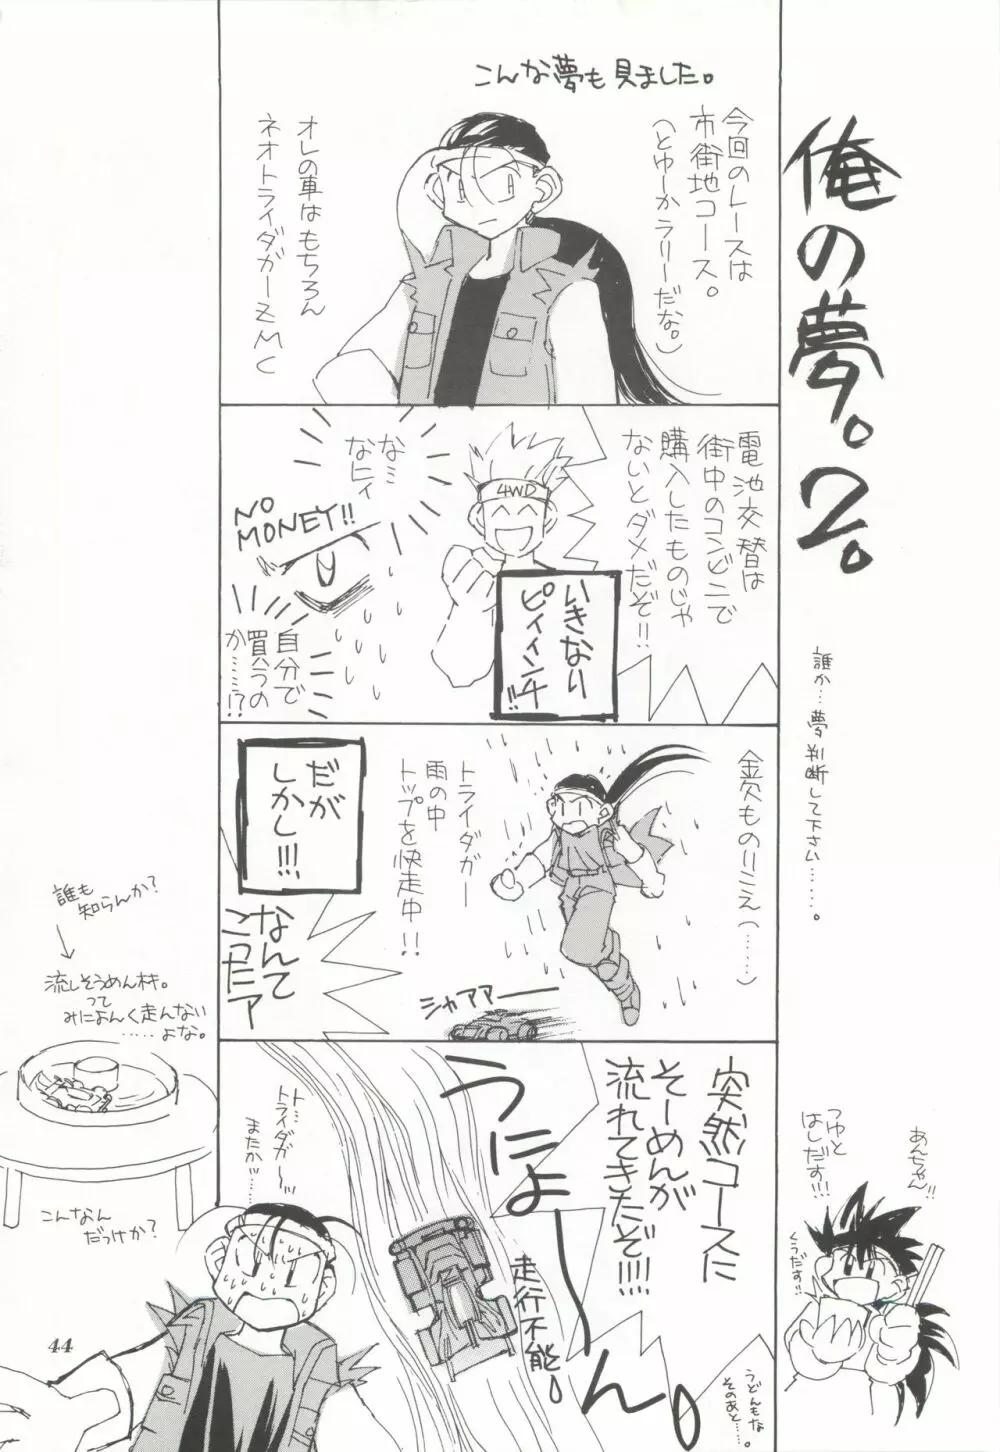 俺の夢。2。
誰か…夢判断して下さい……。
こんな夢も見ました。
今回のレースは
市街地コース。
(とゆーかラリーだな。)
オレの車はもちろん
ネオトライダガーZMC
電池交替は
街中のコンビニで
購入したものじゃ
ないとダメだぞ!!
4WD
いきなり
ピィィンチ!!
なミ
なヒィ
NO
MONEY!!
自分で
買うの
か……!?
トライダガー
雨の中
トップを快走中!!
シャアアー
だが
しかし!!!
なんて
こったァ
突然コースに
そーめんが
流れてきたぞ!!!!
うにょーーん。
走行不能。
うどんもな
そのあと…。
ト…
トライダガ〜
またか…
あんちゃん!!
つゆと
はしだす!!!
くうだす!!
誰も
知らんか?
流しそうめん村。
って
みによんく走んない
……よな。
こんなん
だっけか?
44